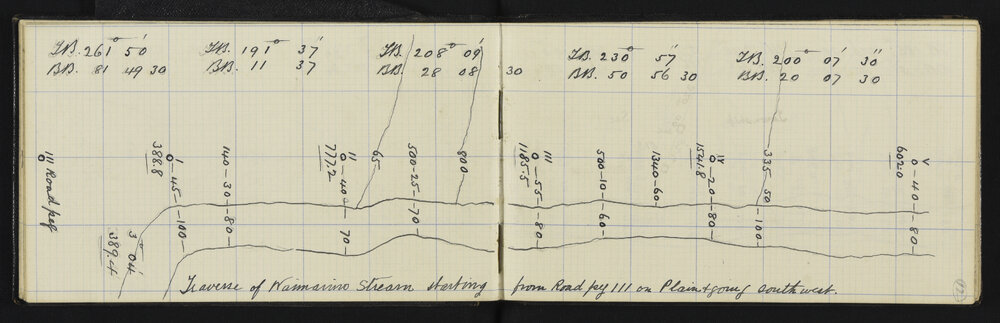 F.B. 261° 50' F.B. 191° 37' F.B. 208° 09' F.B. 230° 57' F.B. 200° 07' 30"
B.B. 81 49 30 B.B. 11 37 B.B. 28 08 30 B.B. 50 56 30 B.B. 20 07 30
III Road peg
I
O-45-100-
388.8
3° 04'
389.4
140-30-80-
II
O-40-70-
777.2
65-
500-25-70-
800
III
O-55-80-
1185.5
500-10-60-
1340-60-
IV
O-20-80-
1541.8
335-50-100-
V
O-40-80-
602.0
Traverse of Waimarino Stream starting from Road peg III on Plain & going southwest.